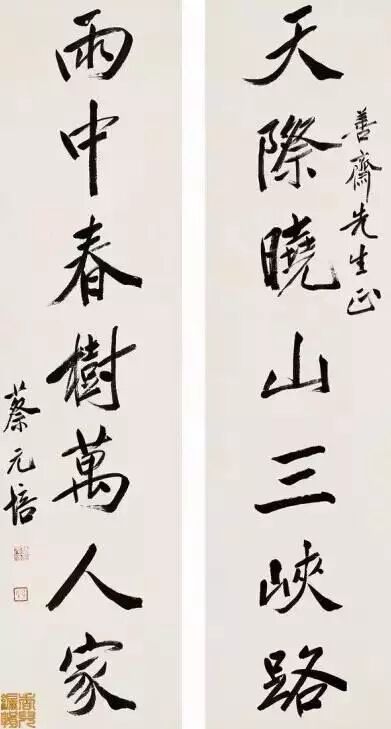 天際曉山三峽路
善齋先生正
雨中春樹萬人家
蔡元培